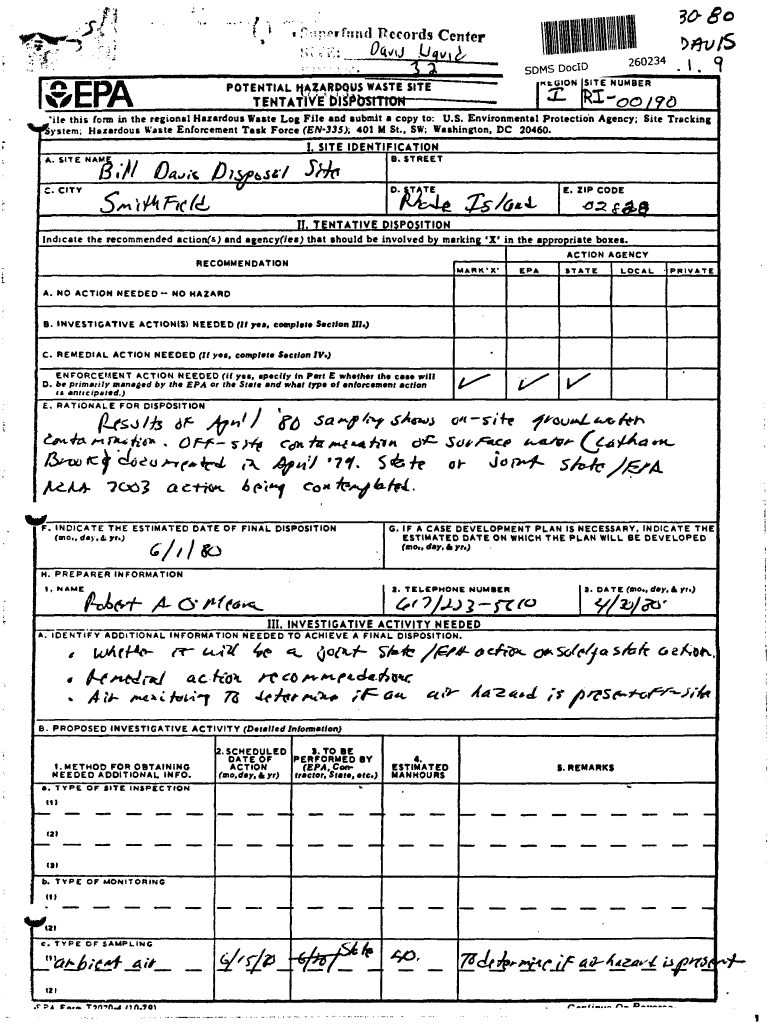 30-80
DAVIS
Superfund Records Center
SITE: Davis Liquid
32
SDMS DocID 260234
.1.9
EPA
POTENTIAL HAZARDOUS WASTE SITE
TENTATIVE DISPOSITION
REGION SITE NUMBER
I RI-00190
File this form in the regional Hazardous Waste Log File and submit a copy to: U.S. Environmental Protection Agency; Site Tracking
System; Hazardous Waste Enforcement Task Force (EN-335); 401 M St., SW; Washington, DC 20460.
I. SITE IDENTIFICATION
A. SITE NAME B. STREET
Bill Davis Disposal Site
C. CITY D. STATE E. ZIP CODE
Smithfield Rhode Island 02828
II. TENTATIVE DISPOSITION
Indicate the recommended action(s) and agency(ies) that should be involved by marking 'X' in the appropriate boxes.
RECOMMENDATION ACTION AGENCY
MARK'X' EPA STATE LOCAL PRIVATE
A. NO ACTION NEEDED -- NO HAZARD
B. INVESTIGATIVE ACTION(S) NEEDED (If yes, complete Section III.)
C. REMEDIAL ACTION NEEDED (If yes, complete Section IV.)
ENFORCEMENT ACTION NEEDED (if yes, specify in Part E whether the case will
D. be primarily managed by the EPA or the State and what type of enforcement action
is anticipated.)
E. RATIONALE FOR DISPOSITION
Results of April '80 sampling shows on-site groundwater
contamination. Off-site contamination of surface water (Latham
Brook) documented in April '79. State or joint State/EPA
RCRA 7003 action being contemplated.
F. INDICATE THE ESTIMATED DATE OF FINAL DISPOSITION
(mo., day, & yr.)
6/1/80
G. IF A CASE DEVELOPMENT PLAN IS NECESSARY, INDICATE THE
ESTIMATED DATE ON WHICH THE PLAN WILL BE DEVELOPED
(mo., day, & yr.)
H. PREPARER INFORMATION
1. NAME 2. TELEPHONE NUMBER 3. DATE (mo., day, & yr.)
Robert A O'Meara 617/223-5610 4/30/80
III. INVESTIGATIVE ACTIVITY NEEDED
A. IDENTIFY ADDITIONAL INFORMATION NEEDED TO ACHIEVE A FINAL DISPOSITION.
• Whether it will be a joint State/EPA action or solely a state action.
• Remedial action recommendations
• Air monitoring to determine if an air hazard is present off-site
B. PROPOSED INVESTIGATIVE ACTIVITY (Detailed Information)
1. METHOD FOR OBTAINING
NEEDED ADDITIONAL INFO.
2. SCHEDULED
DATE OF
ACTION
(mo, day, & yr)
3. TO BE
PERFORMED BY
(EPA, Con-
tractor, State, etc.)
4.
ESTIMATED
MANHOURS
5. REMARKS
a. TYPE OF SITE INSPECTION
(1)
(2)
(3)
b. TYPE OF MONITORING
(1)
(2)
c. TYPE OF SAMPLING
(1) ambient air 6/15/80 State 40. To determine if air hazard is present
(2)
EPA Form T2070-4 (10-79) Continue On Reverse